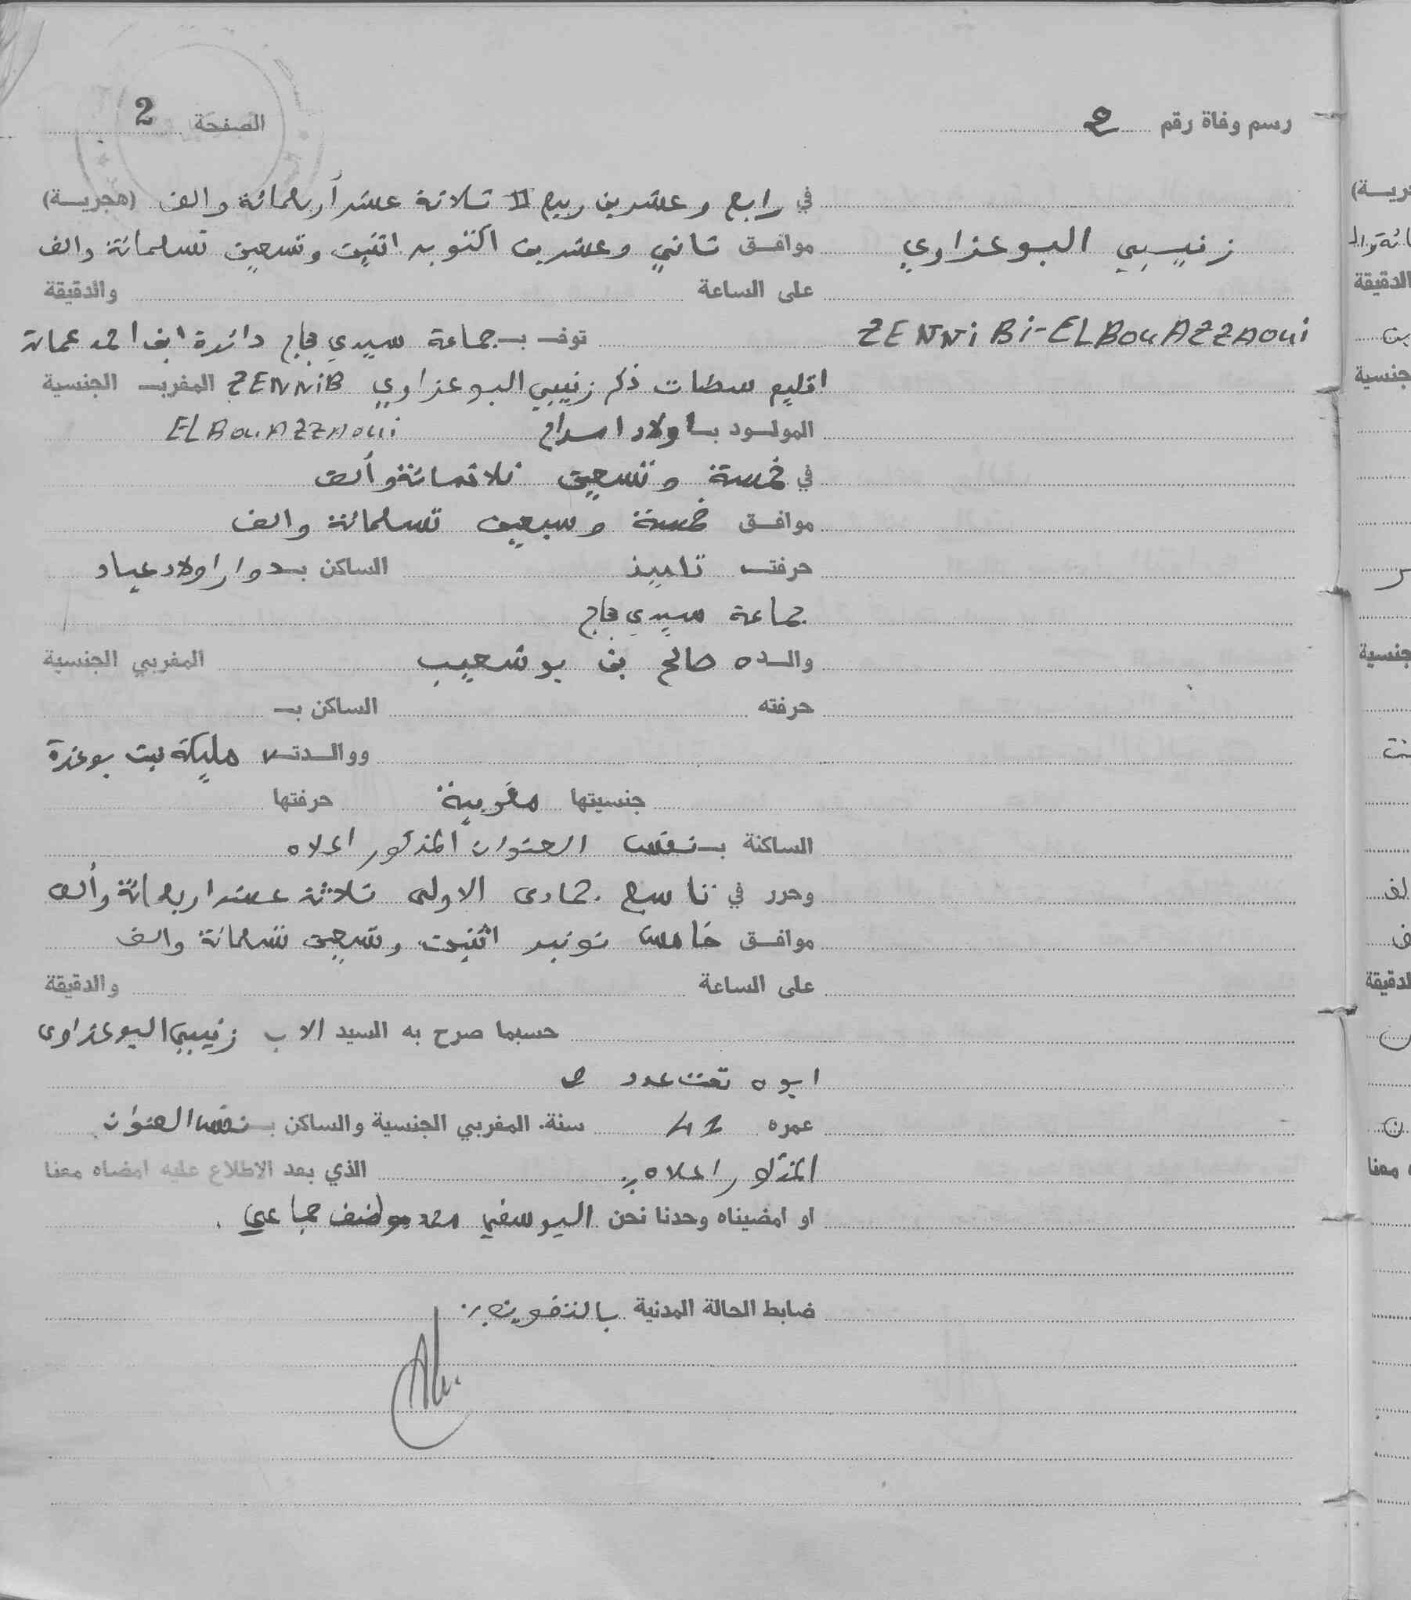 رسم وفاة رقم 2
الصفحة 2
زنيبي البوعزاوي
ZENNiBi-ELBOUAZZAOUi
في رابع وعشرين ربيع II ثلاثة عشر أربعمائة والف (هجرية)
موافق ثاني وعشرين اكتوبر اثنين وتسعين تسعمائة والف
على الساعة والدقيقة
توفي بـ جماعة سيدي حجاج دائرة ابن احمد عمالة
اقليم سطات ذكر زنيبي البوعزاوي ZENNiB المغربي الجنسية
المولود بـ اولاد امراح ELBOUAZZAOUi
في خمسة وتسعين ثلاثمائة وألف
موافق خمسة وسبعين تسعمائة والف
حرفته تلميذ الساكن بـ دوار اولاد عياد
جماعة سيدي حجاج
والده صالح بن بوشعيب المغربي الجنسية
حرفته الساكن بـ
ووالدته مليكة بنت بوعزة
جنسيتها مغربية حرفتها
الساكنة بـ نفس العنوان المذكور اعلاه
وحرر في تاسع جمادى الاولى ثلاثة عشر اربعمائة وألف
موافق خامس نونبر اثنين وتسعين تسعمائة والف
على الساعة والدقيقة
حسبما صرح به السيد الاب زنيبي البوعزاوي
ابوه تحت عدد
عمره 42 سنة. المغربي الجنسية والساكن بـ نفس العنوان
المذكور اعلاه الذي بعد الاطلاع عليه امضاه معنا
او امضيناه وحدنا نحن اليوسفي محمد موظف جماعي .
ضابط الحالة المدنية بالتفويض
جرية)
الدقيقة
بن
جنسية
جنسية
نت
لف
الدقيقة
ن
ن
معنا